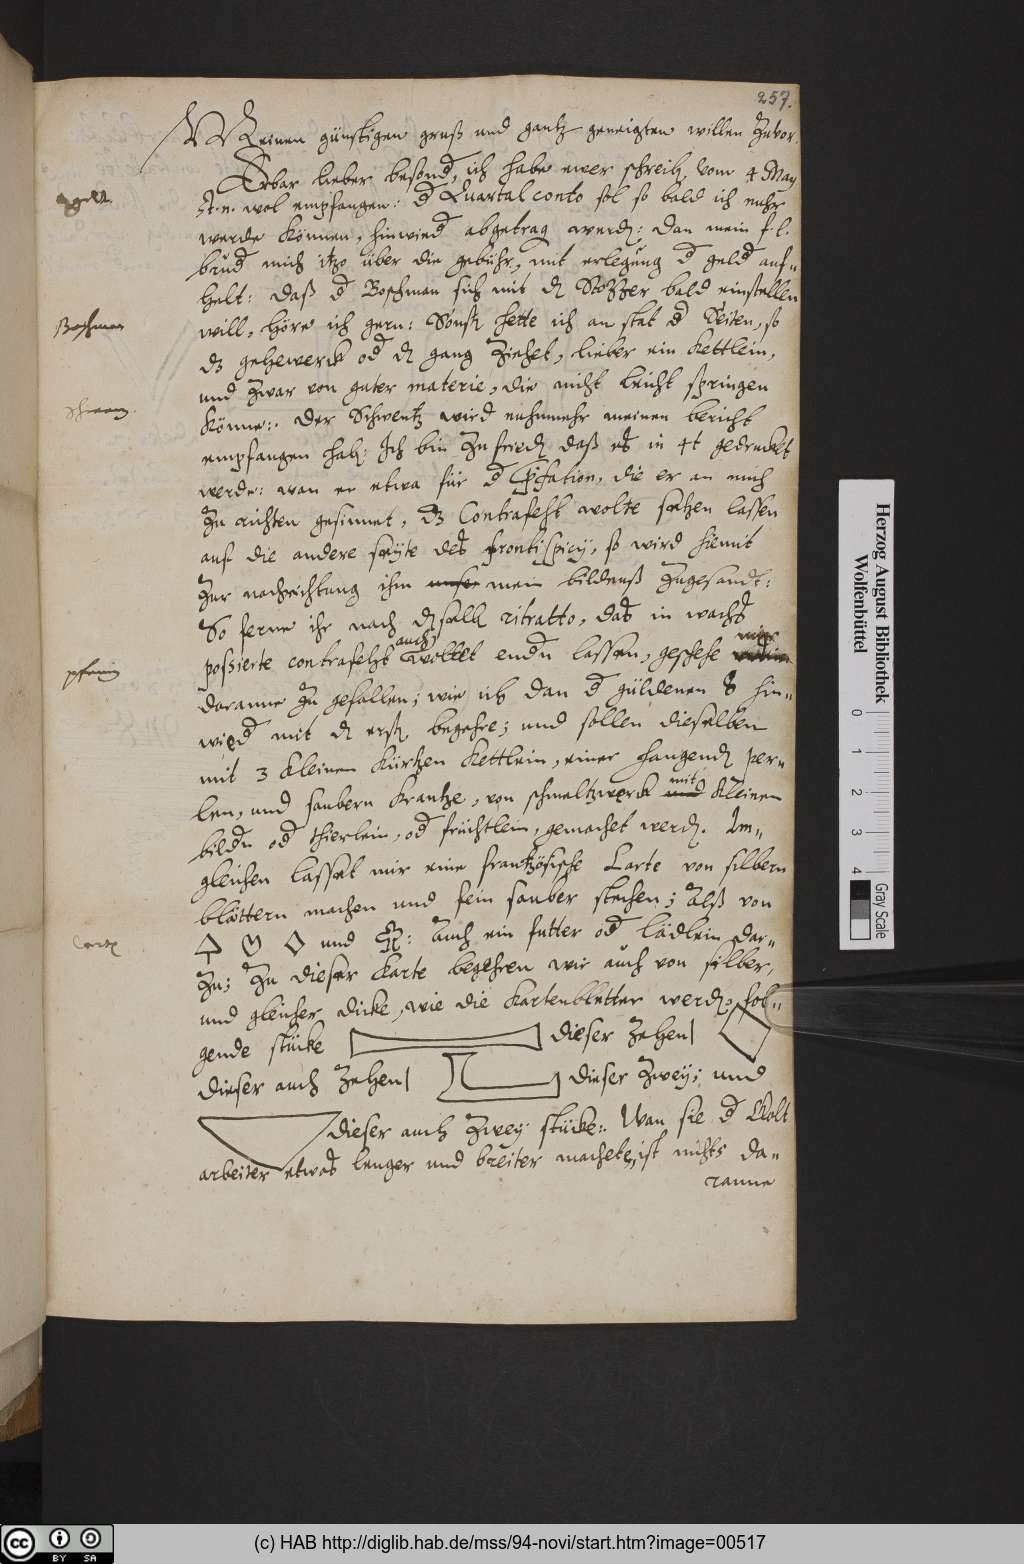 257.
Meinen günstigen gruß und gantz geneigten willen zuvor.
Erbar lieber besond, ich habe ewer schreib vom 4 May
gelt.
St. n. wol empfangen: d Quartal conto sol so bald ich nuhr
werde können, hinwied abgetrag werd: dan mein f. l.
brud mich itzo über die gebühr, mit erlegung d geld auf-
helt: daß d Boschman sich mit d bald einstellen
Boschman
will, höre ich gern: Sonst hette ich an stat d Seiten, so
dz gehewerck od d gang ziehet, lieber ein Kettlein,
und zwar von guter materie, die nicht leicht springen
Schwentz.
könne: Der Schwentz wird nuhnmehr meinen bericht
empfangen hab: Ich bin zu fried daß es in 4t gedruckt
werde: wan er etwa für d die er an mich
zu richten gesinnet, dz Contrafeht wolte setzen lassen
auf die andere seyte des frontispicij, so wird hiemit
zur nachrichtung ihm mein bildnuß zugesandt:
So ferne ihr nach dselb ritratto, das in wachs
possierte contrafeht auch wollet endn lassen, geschehe mir
pfenig
daranne zu gefallen; wie ich dan d güldenen 8 hin-
wied mit d erst begehre; und sollen dieselben
mit 3 kleinen kürtzen Kettlein, einer hangend per-
len, und saubern krantze, von schmeltzwerck mit kleinen
bildn od thierlein, od früchtlein, gemachet werd. Im-
gleichen lasset mir eine frantzösische Carte von silbern
blättern machen und fein sauber stechen; Alß von
Carte
und : Auch ein futter od lädlein dar-
zu; Zu dieser Karte begehren wir auch von silber,
und gleicher dicke, wie die Kartenbletter werd, fol-
gende stücke dieser zehen
dieser auch zehen dieser zwey; und
dieser auch zwey stücke: Wan sie d Golt
arbeiter etwas lenger und breiter machete, ist nichts da-
ranne
Herzog August Bibliothek
Wolfenbüttel
0 1 2 3 4
Gray Scale
cc BY SA
(c) HAB http://diglib.hab.de/mss/94-novi/start.htm?image=00517